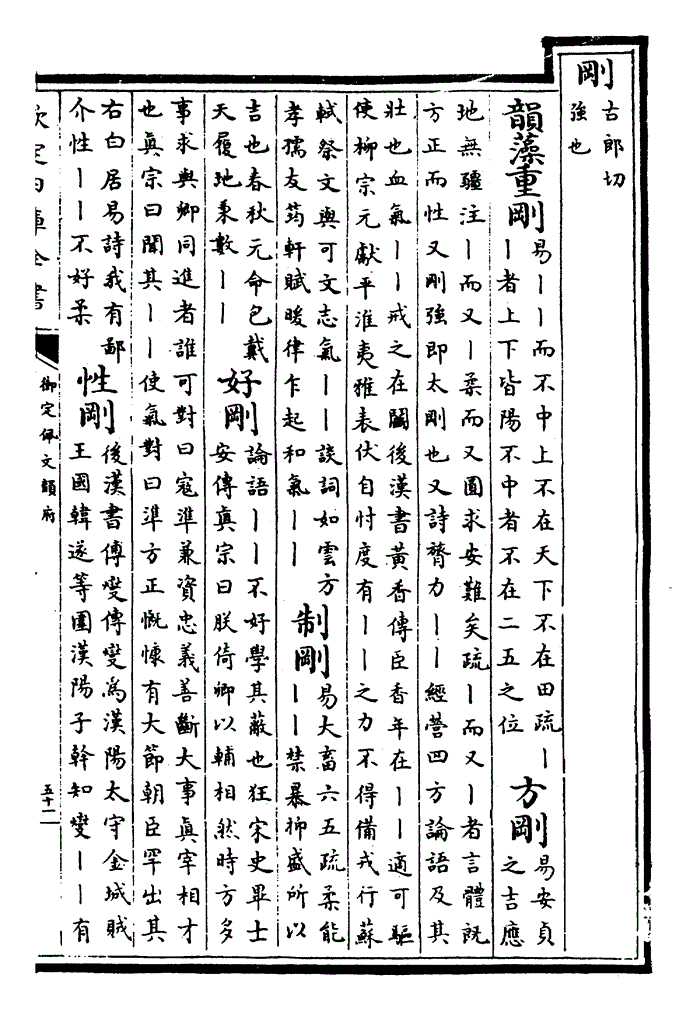 剛
古郎切
強也
韻藻重剛
易｜｜而不中上不在天下不在田疏｜
｜者上下皆陽不中者不在二五之位
方剛
易安貞
之吉應
地無疆注｜而又｜柔而又圓求安難矣疏｜而又｜者言體既
方正而性又剛強即太剛也又詩膂力｜｜經營四方論語及其
壯也血氣｜｜戒之在鬭後漢書黃香傳臣香年在｜｜適可驅
使柳宗元獻平淮夷雅表伏自忖度有｜｜之力不得備戎行蘇
軾祭文與可文志氣｜｜談詞如雲方
孝孺友筠軒賦暖律乍起和氣｜｜
制剛
易大畜六五疏柔能
｜｜禁暴抑盛所以
吉也春秋元命包戴
天履地秉數｜｜
好剛
論語｜｜不好學其蔽也狂宋史畢士
安傳真宗曰朕倚卿以輔相然時方多
事求與卿同進者誰可對曰寇準兼資忠義善斷大事真宰相才
也真宗曰聞其｜｜使氣對曰準方正慨慷有大節朝臣罕出其
右白居易詩我有鄙
介性｜｜不好柔
性剛
後漢書傅燮傳燮為漢陽太守金城賊
王國韓遂等圍漢陽子幹知燮｜｜有
欽定四庫全書
御定佩文韻府
五十一